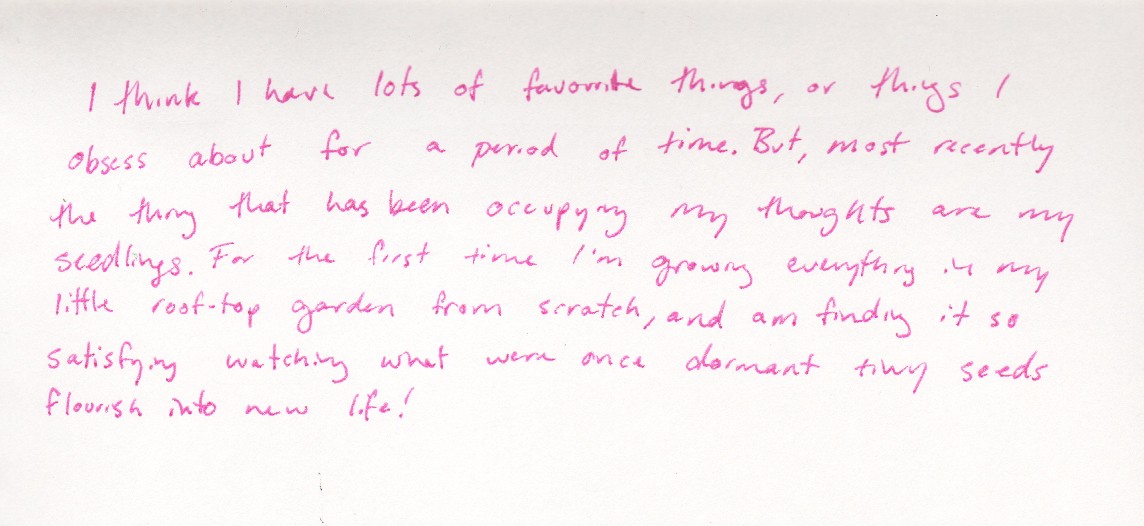 I think I have lots of favorite things, or things I
obsess about for a period of time. But, most recently
the thing that has been occupying my thoughts are my
seedlings. For the first time I'm growing everything in my
little roof-top garden from scratch, and am finding it so
satisfying watching what were once dormant tiny seeds
flourish into new life!